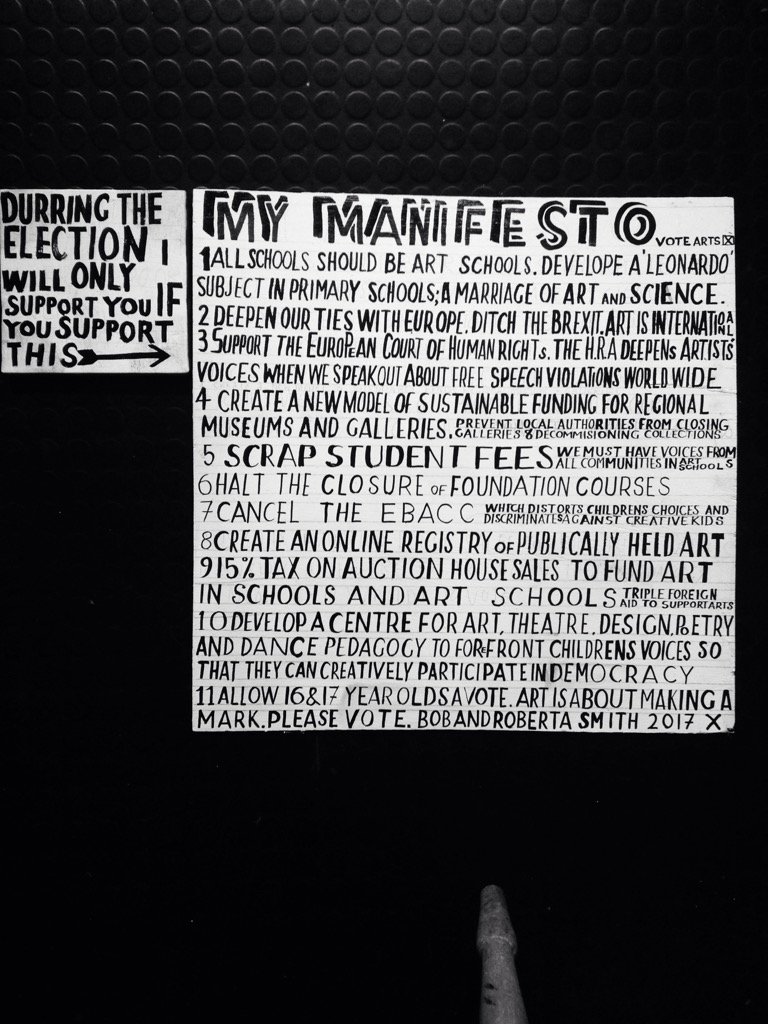 DURRING THE
ELECTION I
WILL ONLY
SUPPORT YOU IF
YOU SUPPORT
THIS
MY MANIFESTO VOTE ARTS X
1 ALL SCHOOLS SHOULD BE ART SCHOOLS. DEVELOPE A 'LEONARDO'
SUBJECT IN PRIMARY SCHOOLS; A MARRIAGE OF ART AND SCIENCE.
2 DEEPEN OUR TIES WITH EUROPE. DITCH THE BREXIT. ART IS INTERNATIONAL
3 SUPPORT THE EUROPEAN COURT OF HUMAN RIGHTS. THE H.R.A DEEPENS ARTISTS'
VOICES WHEN WE SPEAK OUT ABOUT FREE SPEECH VIOLATIONS WORLD WIDE
4 CREATE A NEW MODEL OF SUSTAINABLE FUNDING FOR REGIONAL
MUSEUMS AND GALLERIES. PREVENT LOCAL AUTHORITIES FROM CLOSING
GALLERIES & DECOMMISIONING COLLECTIONS
5 SCRAP STUDENT FEES WE MUST HAVE VOICES FROM
ALL COMMUNITIES IN ART SCHOOLS
6 HALT THE CLOSURE OF FOUNDATION COURSES
7 CANCEL THE EBACC WHICH DISTORTS CHILDRENS CHOICES AND
DISCRIMINATES AGAINST CREATIVE KIDS
8 CREATE AN ONLINE REGISTRY OF PUBLICALLY HELD ART
9 15% TAX ON AUCTION HOUSE SALES TO FUND ART
IN SCHOOLS AND ART SCHOOLS TRIPLE FOREIGN
AID TO SUPPORT ARTS
10 DEVELOP A CENTRE FOR ART, THEATRE, DESIGN, POETRY
AND DANCE PEDAGOGY TO FOREFRONT CHILDRENS VOICES SO
THAT THEY CAN CREATIVELY PARTICIPATE IN DEMOCRACY
11 ALLOW 16 & 17 YEAR OLDS A VOTE. ART IS ABOUT MAKING A
MARK. PLEASE VOTE. BOB AND ROBERTA SMITH 2017 X